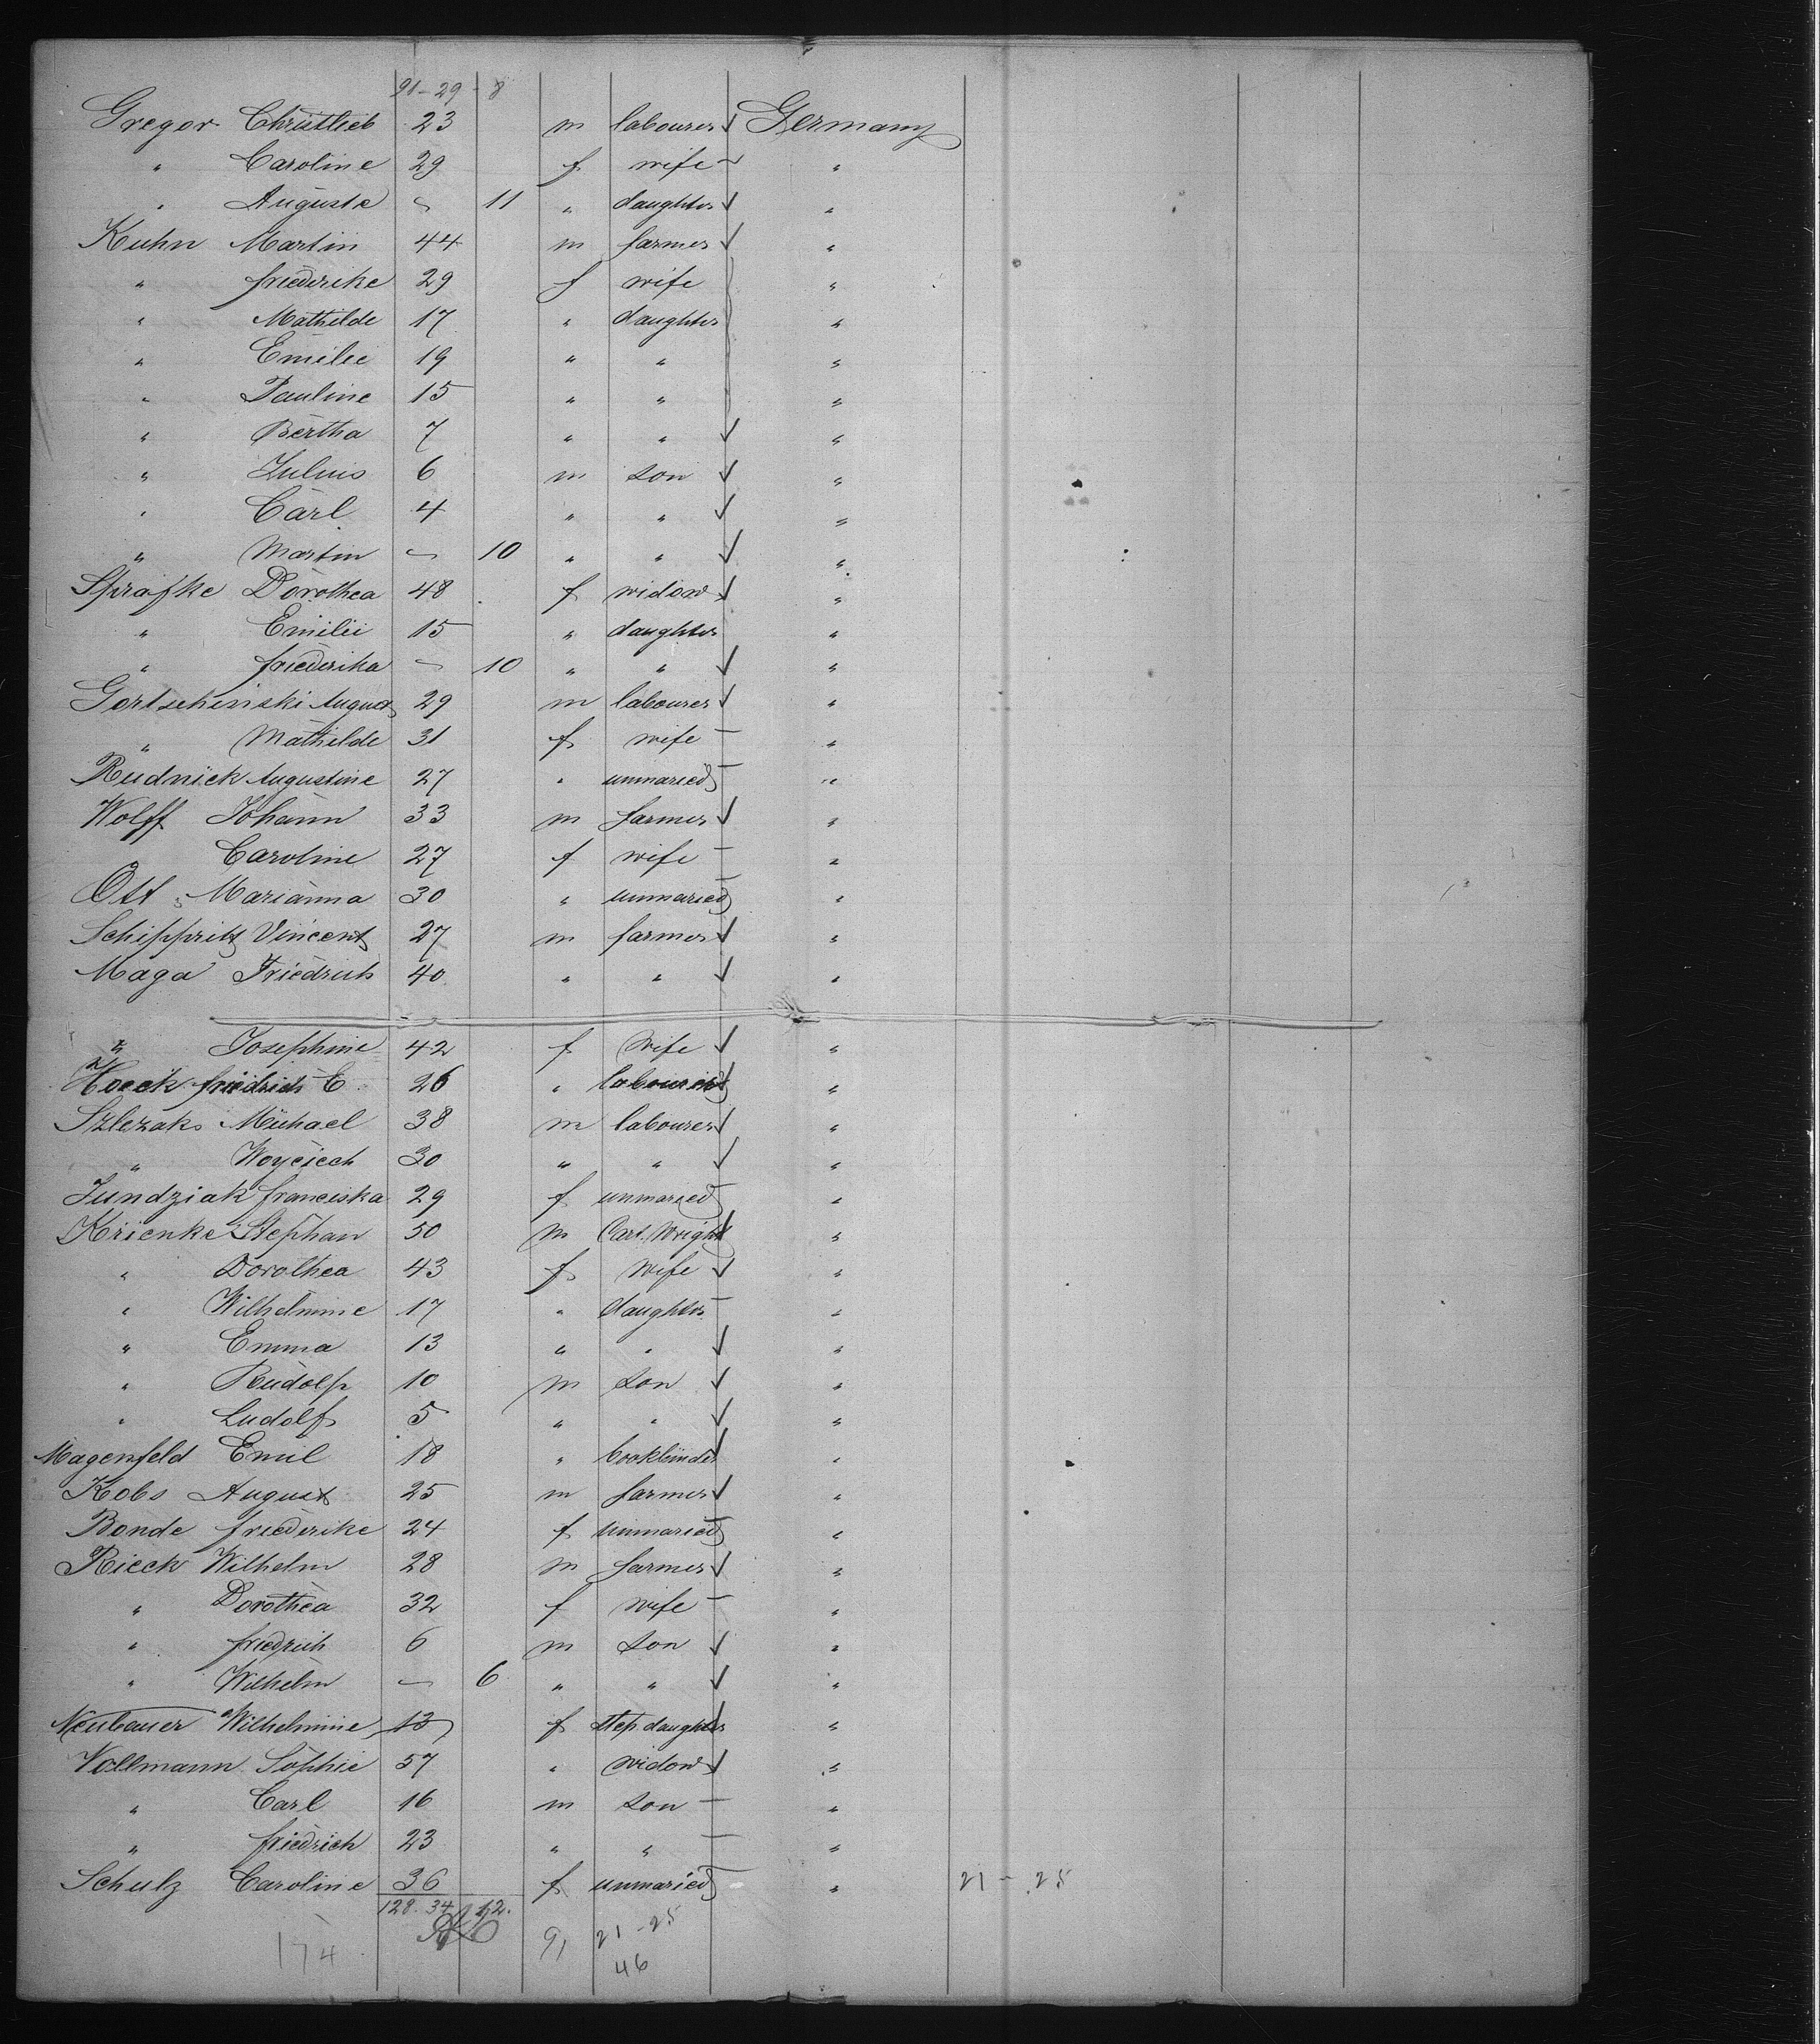 91 - 29 - 8
Gregor Christlieb 23 m labourer Germany
" Caroline 29 f wife "
" Auguste - 11 " daughter "
Kuhn Martin 44 m farmer "
" friederike 29 f wife "
" Mathilde 17 " daughter "
" Emilie 19 " " "
" Pauline 15 " " "
" Bertha 7 " " "
" Julius 6 m son "
" Carl 4 " " "
" Martin - 10 " " "
Sprafke Dorothea 48 f widow "
" Emilie 15 " daughter "
" friederika - 10 " " "
Gortschinski August 29 m labourer "
" Mathilde 31 f wife "
Rudnick Augustine 27 " unmaried "
Wolff Johann 33 m farmer "
Caroline 27 f wife "
Ott Marianna 30 " unmaried "
Schippritz Vincent 27 m farmer "
Maga Friedrich 40 " " "
" Josephine 42 f wife "
Hoeck friedrich C. 26 " "
Szlezak Michael 38 m labourer "
" Woyciech 30 " " "
Jundziak franciska 29 f unmaried "
Krienke Stephan 50 m Cart Wright "
" Dorothea 43 f wife "
" Wilhelmine 17 " daughter "
" Emma 13 " " "
" Rudolf 10 m son "
" Ludolf 5 " " "
Magenfeld Emil 18 " bookbinder "
Kobs August 25 m farmer "
Bonde friederike 24 f unmaried "
Rieck Wilhelm 28 m farmer "
" Dorothea 32 f wife "
" friedrich 6 m son "
" Wilhelm - 6 " " "
Neubauer Wilhelmine 13 f step daughter "
Vollmann Sophie 57 " widow "
" Carl 16 m son "
" friedrich 23 " " "
Schulz Caroline 36 f unmaried " 21 - 25
128. 34. 12.
174 91 21 - 25
46